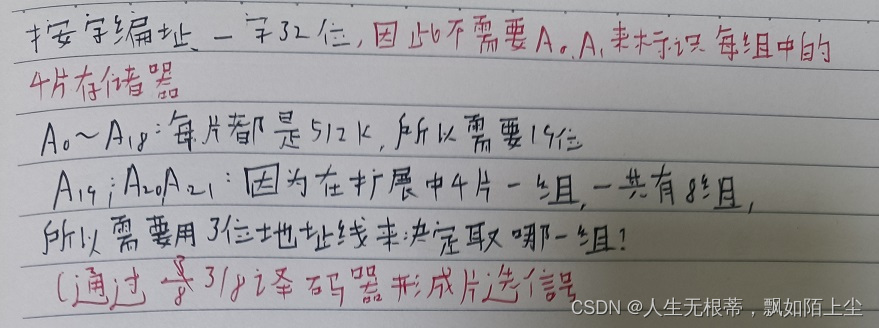 按字编址、一字32位,因此不需要A₀、A₁来标识每组中的
4片存储器
A₀~A₁₈:每片都是512K,所以需要19位
A₁₉;A₂₀A₂₁:因为在扩展中4片一组,一共有8组,
所以需要用3位地址线来决定取哪一组!
(通过 3/8译码器形成片选信号
CSDN @人生无根蒂,飘如陌上尘